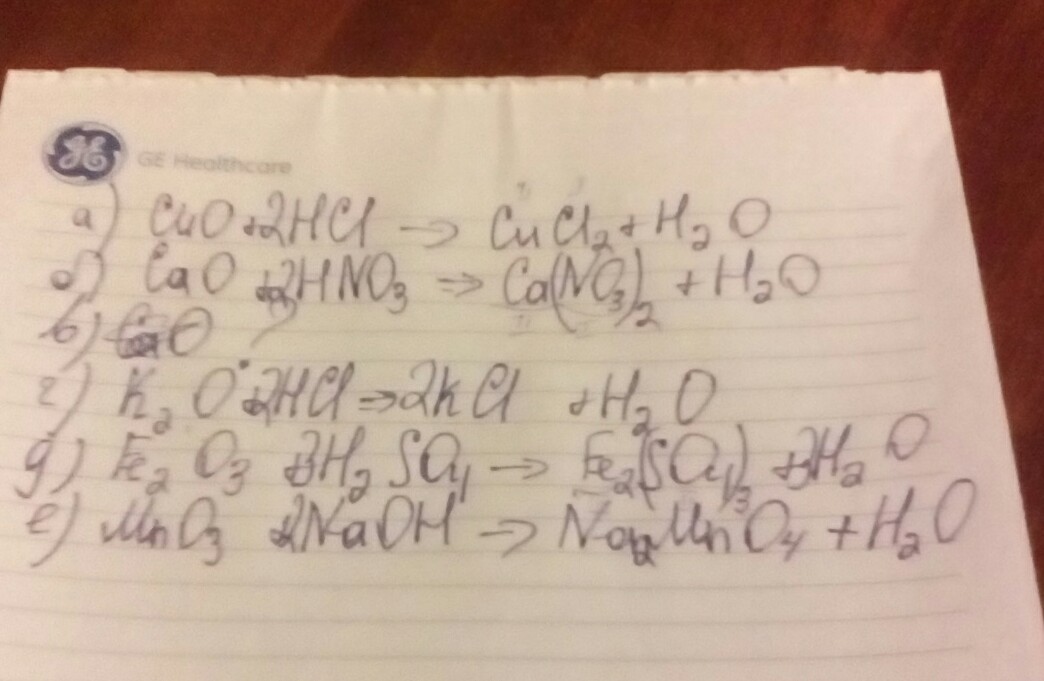 GE GE Healthcare
а) CuO + 2HCl → CuCl₂ + H₂O
б) CaO + 2HNO₃ ⇒ Ca(NO₃)₂ + H₂O
в)
г) K₂O + 2HCl ⇒ 2KCl + H₂O
д) Fe₂O₃ + 3H₂SO₄ → Fe₂(SO₄)₃ + 3H₂O
е) MnO₃ + 2NaOH → Na₂MnO₄ + H₂O